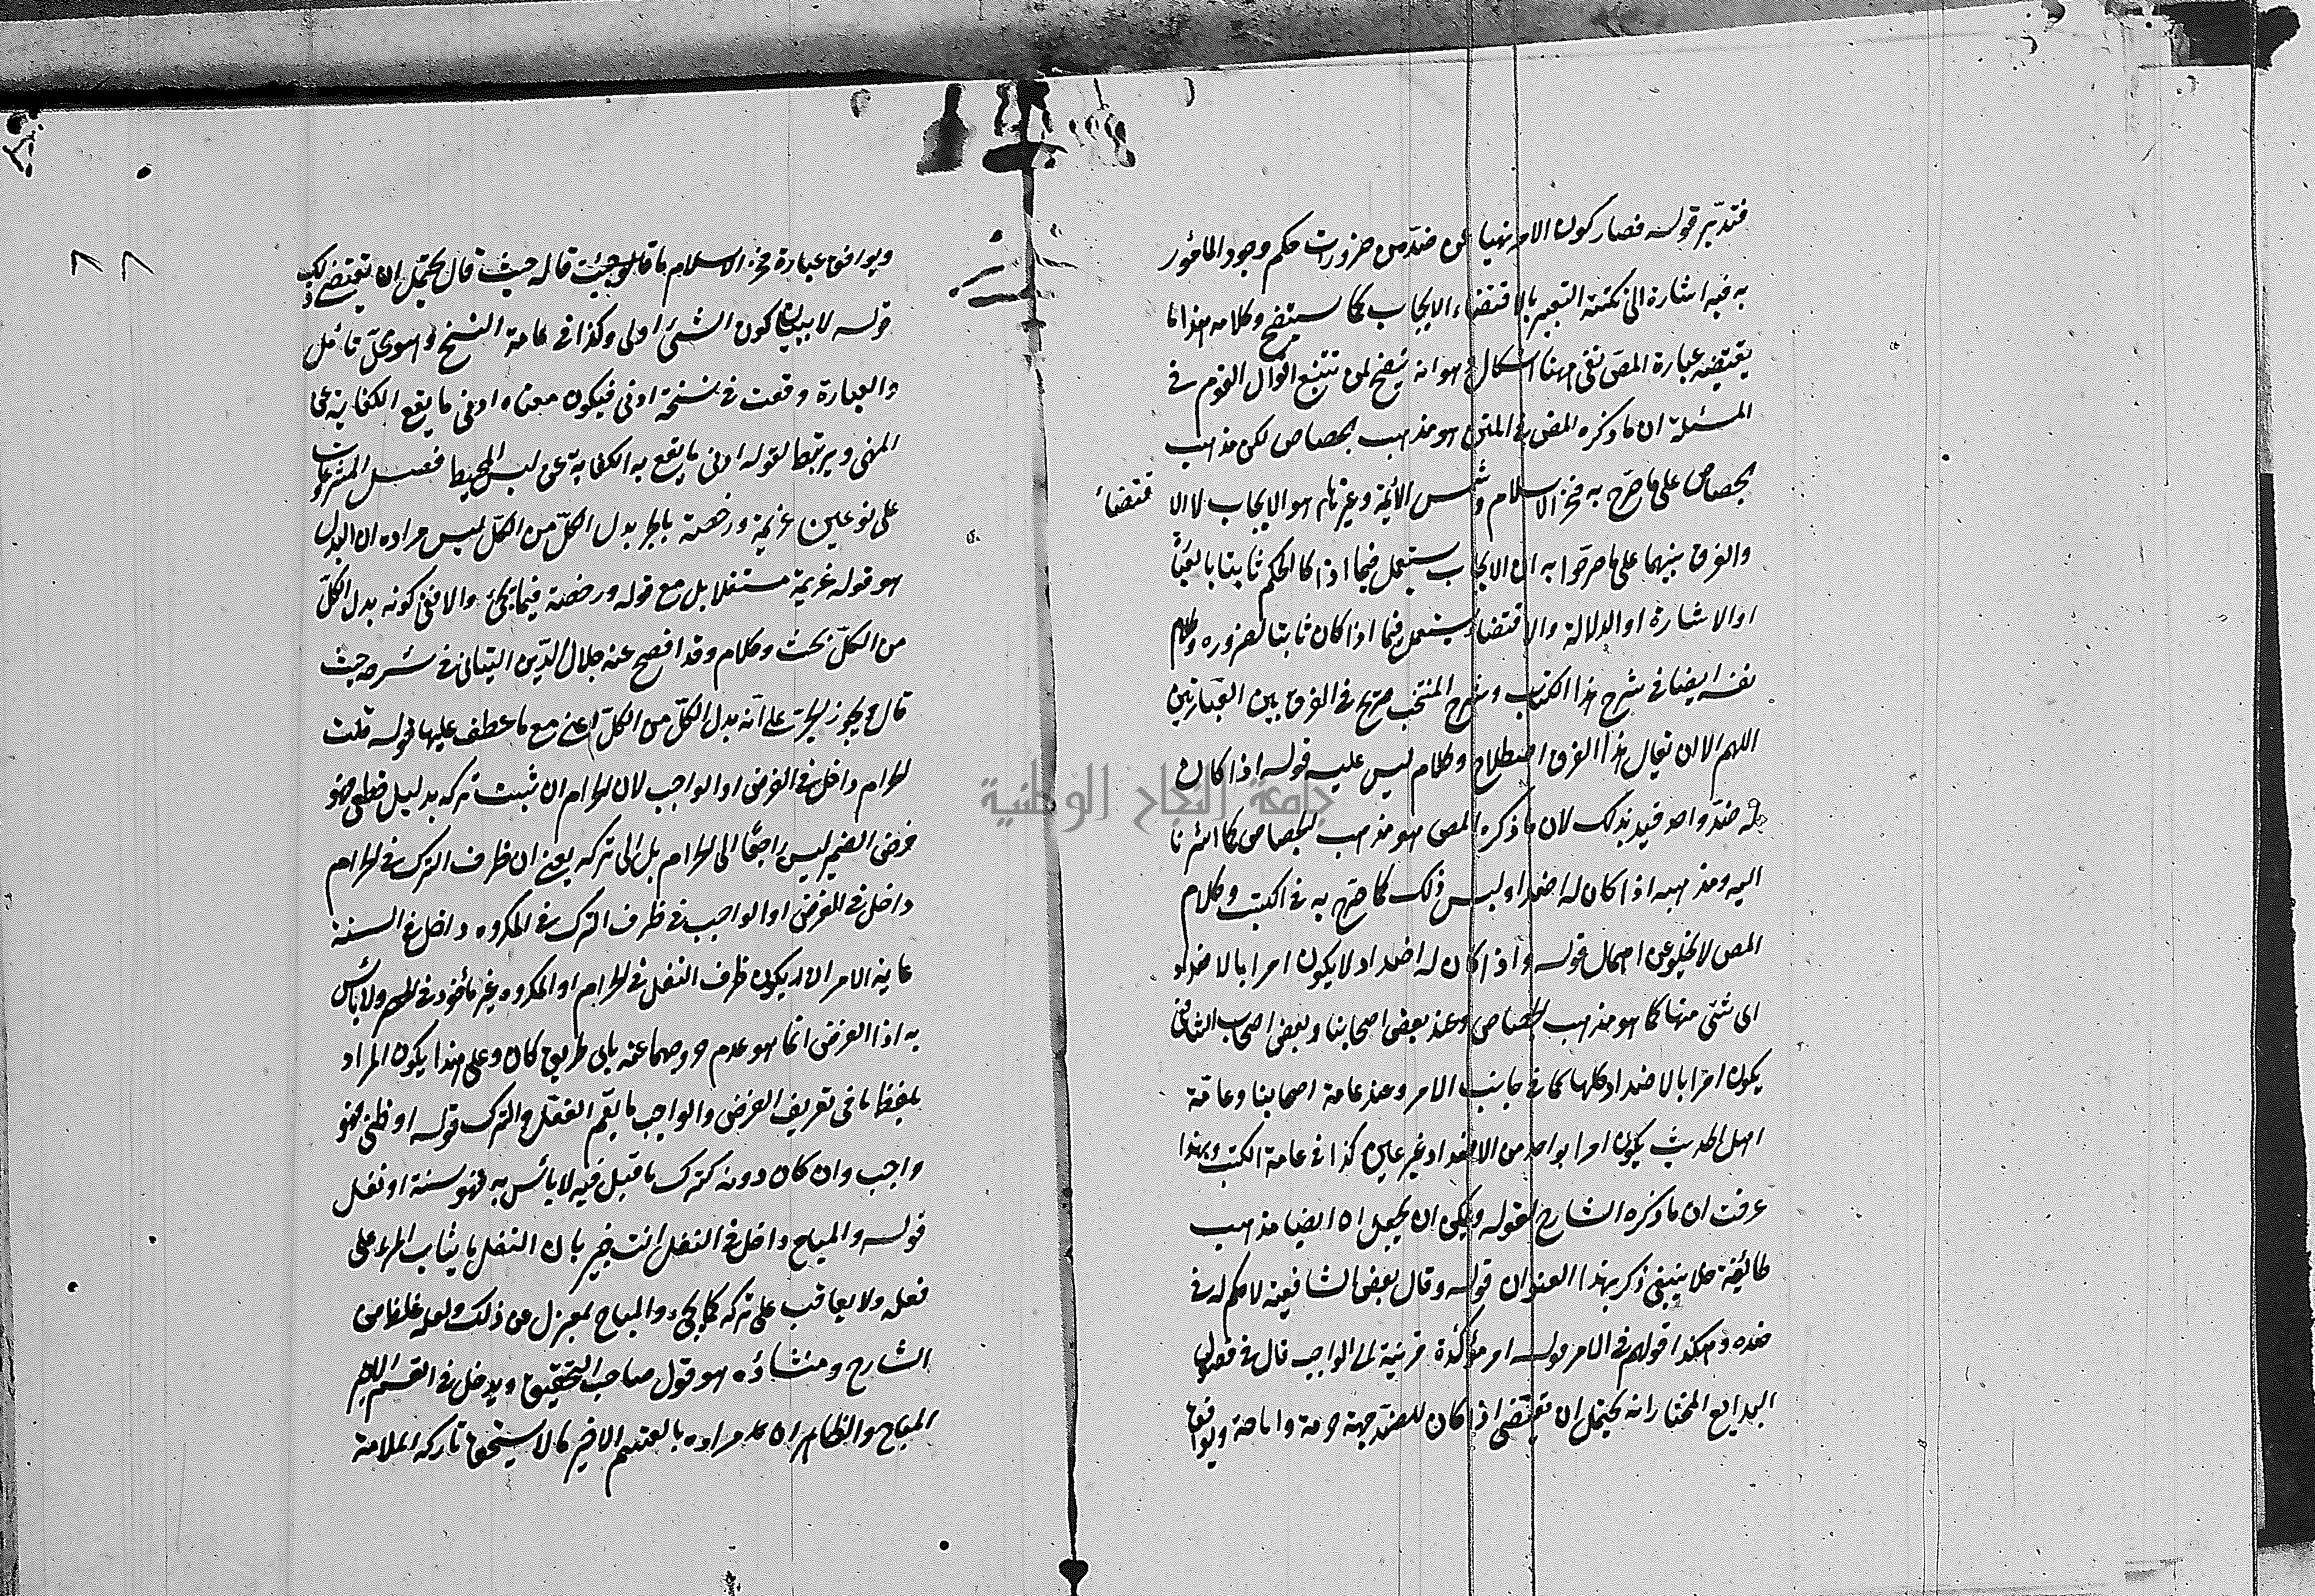 فتدبّر قوله فصار كون الامر نهيا عن ضدّه من ضرورات حكم وجود المأمور
به فيه اشارة الى نكتة التعبير بالاقتضاء الايجاب كما ستضح وكلامه هذا ما
يقتضيه عبارة المص نفى ههنا اشكال وهو انه يتضح لمن تتبع اقوال القوم في
المسئلة ان ما ذكره المص في المتن هو مذهب الجصاص لكن مذهب
الجصاص على ما صرّح به فخر الاسلام وشمس الأئمة وغيرهما هو الايجاب لا الا قتضاء
والفرق بينهما على ما صرحوا به ان الايجاب يستعمل فيما اذا كا الحكم ثابتا بالعبارة
او الاشارة او الدلالة والاقتضاء يستعمل فيما اذا كان ثابتا لضروره وكلام
نفسه ايضا في شرح هذا الكتاب وشرح المنتخب صريح في الفرق بين العبارتين
اللهم الا ان يقال هذا الفرق اصطلاح وكلام ليس عليه قوله اذا كان
له ضدّ واحد قيد بذلك لان ما ذكره المص هو مذهب الجصاص كما اشرنا
اليه ومذهبه اذا كان له اضداد ليس ذلك كما صرّح به في الكتب وكلام
المص لا يخلو عن اجمال قوله واذا كان له اضداد لا يكون امرا بالاضداد
اى شئ منها كما هو مذهب الجصاص وعند بعض اصحابنا وبعض اصحاب الشافعي
يكون امرا بالاضداد كلها كما في جانب الامر وعند عامة اصحابنا وعامّة
اهل الحديث يكون امرا بواحد من الاضداد غير عين كذا في عامة الكتب وبهذا
عرفت ان ما ذكره الشارح بقوله ويمكن ان يجعل ان ايضا مذهب
طائفة فلا ينبغى ذكر بهذا العنوان قوله وقال بعض الشافعية لا حكم له في
ضده وهكذا قولهم في الامر قوله امر مؤكدة قريبة الى الواجب قال في فصول
البدايع المختار انه يحتمل ان يقتضى اذا كان للضدّ جهة حرمة واباحة ويوافق
ويوافق عبارة فخر الاسلام قاله حيث قال يحتمل ان يقتضى ذلك
قوله لا ببيان كون الشئ اولى وكذا في عامة النسخ وهو محلّ تأمل
والعبارة وقعت في نسخة ادنى فيكون معناه ادنى ما يقع الكفاية عن
المنهى ويرتبط لقوله ادنى ما يقع به الكفاية عن لبس المخيط فصل المشروعات
على نوعين عزيمة ورخصة بالجر بدل الكلّ من الكلّ ليس مراده ان البدل
هو قوله عزيمة مستقلا بل مع قوله ورخصة فيما يجئ والا ففى كونه بدل الكلّ
من الكلّ بحث وكلام وقد افصح عنه جلال الدّين التبانى في شرحه حيث
قال ويجوز الجرّ على انّه بدل الكلّ من الكلّ اعنى مع ما عطف عليها قوله قلت
الحرام داخل في الفرض او الواجب لان الحرام ان ثبت تركه بدليل قطعى فهو
فرض الضمير ليس راجعًا الى الحرام بل الى تركه يعنى ان طرف الترك في الحرام
داخل في الفرض او الواجب في طرف الترك في المكروه داخل في السنة
غاية الامر ان يكون طرف الفعل في الحرام او المكروه غير مأخوذ في القسم ولا بأس
به اذا الغرض انما هو عدم خروجهما عنه باى طريق كان وعلى هذا يكون المراد
بلفظ ما في تعريف الفرض والواجب ما يعّم الفعل والترك قوله او ظنى فهو
واجب وان كان دونه كترك ما قيل فيه لا بأس به فهو سنة او نفل
قوله والمباح داخل في النفل انت خبير بان النفل ما يثاب المرء على
فعله ولا يعاقب على تركه كما يجئ والمباح بمعزل عن ذلك ولعله غلط من
الشارح ومنشاؤه هو قول صاحب التحقيق ويدخل في القسم الاخير
المباح والظاهر ان مراده بالقسم الاخير ما لا يستحق تاركه الملامة
جامعة النجاح الوطنية